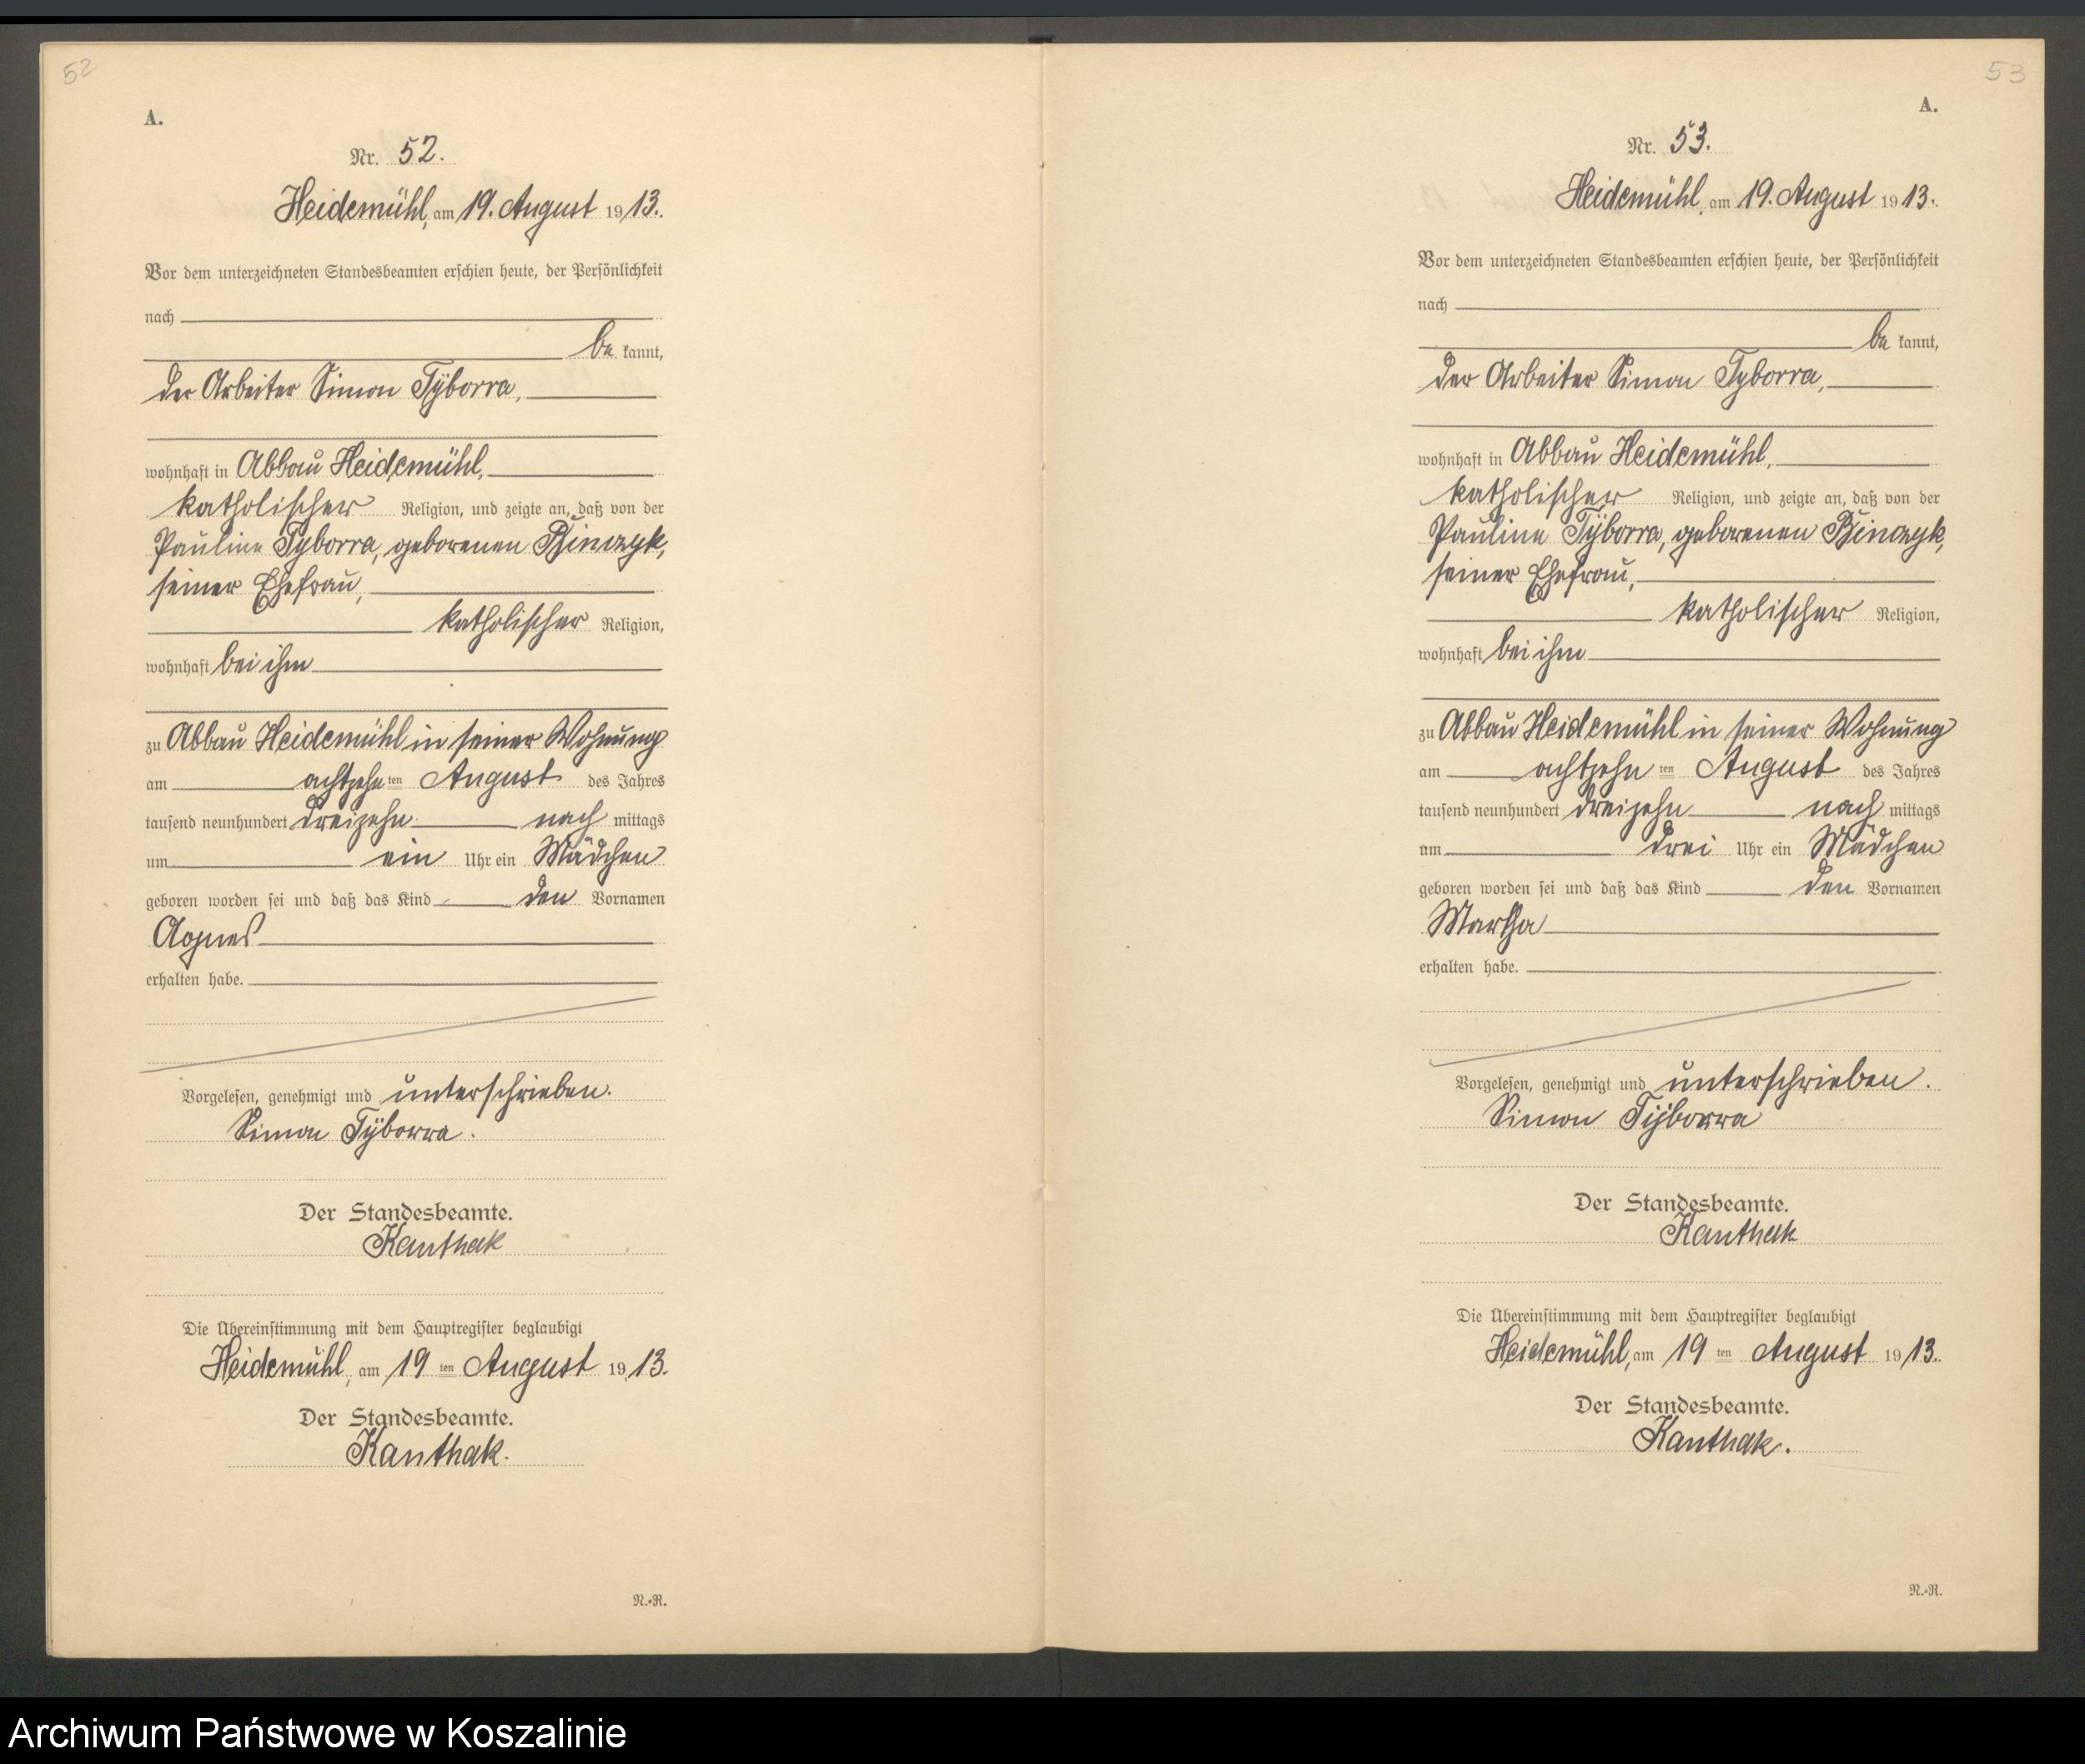 52
A.
Nr. 52.
Heidemühl, am 19. August 1913.
Vor dem unterzeichneten Standesbeamten erschien heute, der Persönlichkeit
nach
be kannt,
der Arbeiter Simon Tÿborra,
wohnhaft in Abbau Heidemühl,
katholischer Religion, und zeigte an, daß von der
Pauline Tyborra, geborenen Binczyk,
seiner Ehefrau,
katholischer Religion,
wohnhaft bei ihm
zu Abbau Heidemühl in seiner Wohnung
am achtzehnten August des Jahres
tausend neunhundert dreizehn nach mittags
um ein Uhr ein Mädchen
geboren worden sei und daß das Kind den Vornamen
Agnes
erhalten habe.
Vorgelesen, genehmigt und unterschrieben.
Simon Tÿborra.
Der Standesbeamte.
Kanthak
Die Übereinstimmung mit dem Hauptregister beglaubigt
Heidemühl, am 19ten August 1913.
Der Standesbeamte.
Kanthak.
N.-R.
53
A.
Nr. 53.
Heidemühl, am 19. August 1913.
Vor dem unterzeichneten Standesbeamten erschien heute, der Persönlichkeit
nach
be kannt,
der Arbeiter Simon Tyborra,
wohnhaft in Abbau Heidemühl,
katholischer Religion, und zeigte an, daß von der
Pauline Tÿborra, geborenen Binczyk,
seiner Ehefrau,
katholischer Religion,
wohnhaft bei ihm
zu Abbau Heidemühl in seiner Wohnung
am achtzehnten August des Jahres
tausend neunhundert dreizehn nach mittags
um drei Uhr ein Mädchen
geboren worden sei und daß das Kind den Vornamen
Martha
erhalten habe.
Vorgelesen, genehmigt und unterschrieben.
Simon Tÿborra
Der Standesbeamte.
Kanthak
Die Übereinstimmung mit dem Hauptregister beglaubigt
Heidemühl, am 19ten August 1913.
Der Standesbeamte.
Kanthak.
N.-R.
Archiwum Państwowe w Koszalinie